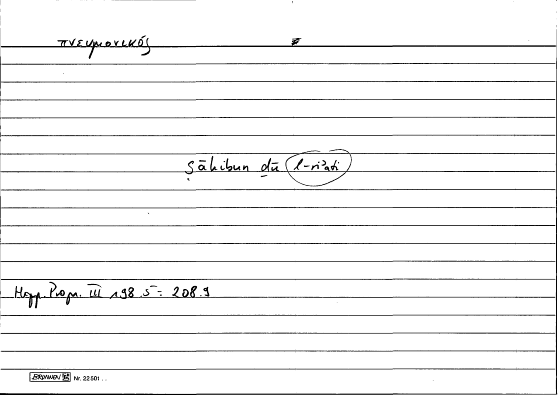 πνευμονικός
ṣāḥibun ḏū l-riʾati
Hipp. Progn. III 198.5 = 208.9
BRUNNEN Nr. 22 501